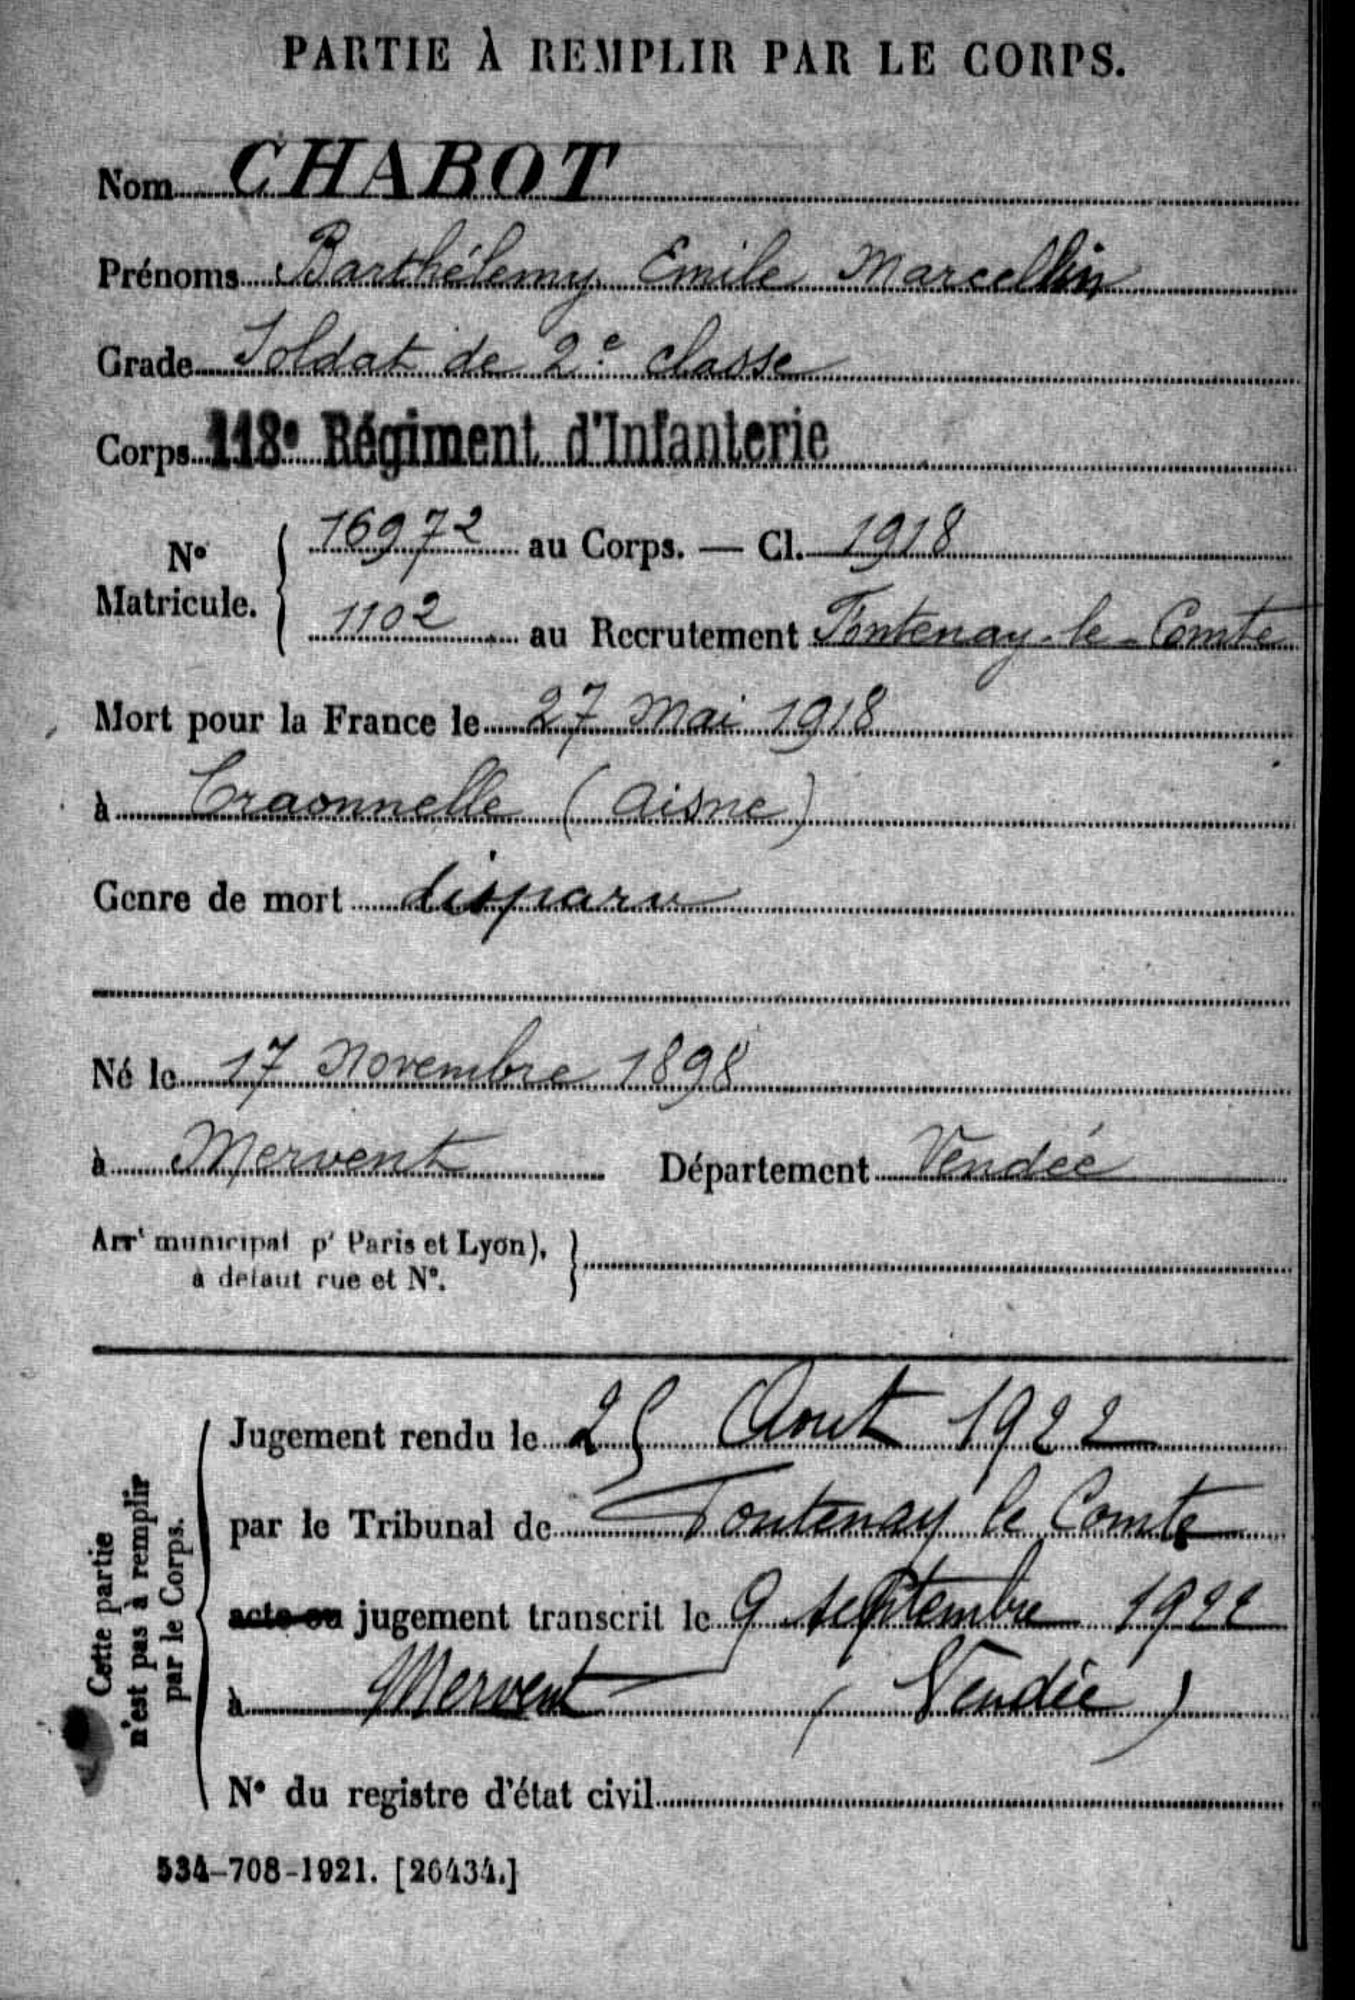 PARTIE À REMPLIR PAR LE CORPS.
Nom CHABOT
Prénoms Barthélemy Emile Marcellin
Grade Soldat de 2e classe
Corps 118e Régiment d'Infanterie
No Matricule. { 16972 au Corps. — Cl. 1918
1102 au Recrutement Fontenay-le-Comte
Mort pour la France le 27 Mai 1918
à Craonnelle (Aisne)
Genre de mort disparu
Né le 17 Novembre 1898
à Mervent Département Vendée
Arrt municipal pr Paris et Lyon),
à défaut rue et No.
Cette partie
n'est pas à remplir
par le Corps.
Jugement rendu le 25 Aout 1922
par le Tribunal de Fontenay le Comte
acte ou jugement transcrit le 9 septembre 1922
à Mervent (Vendée)
No du registre d'état civil
534-708-1921. [26434.]